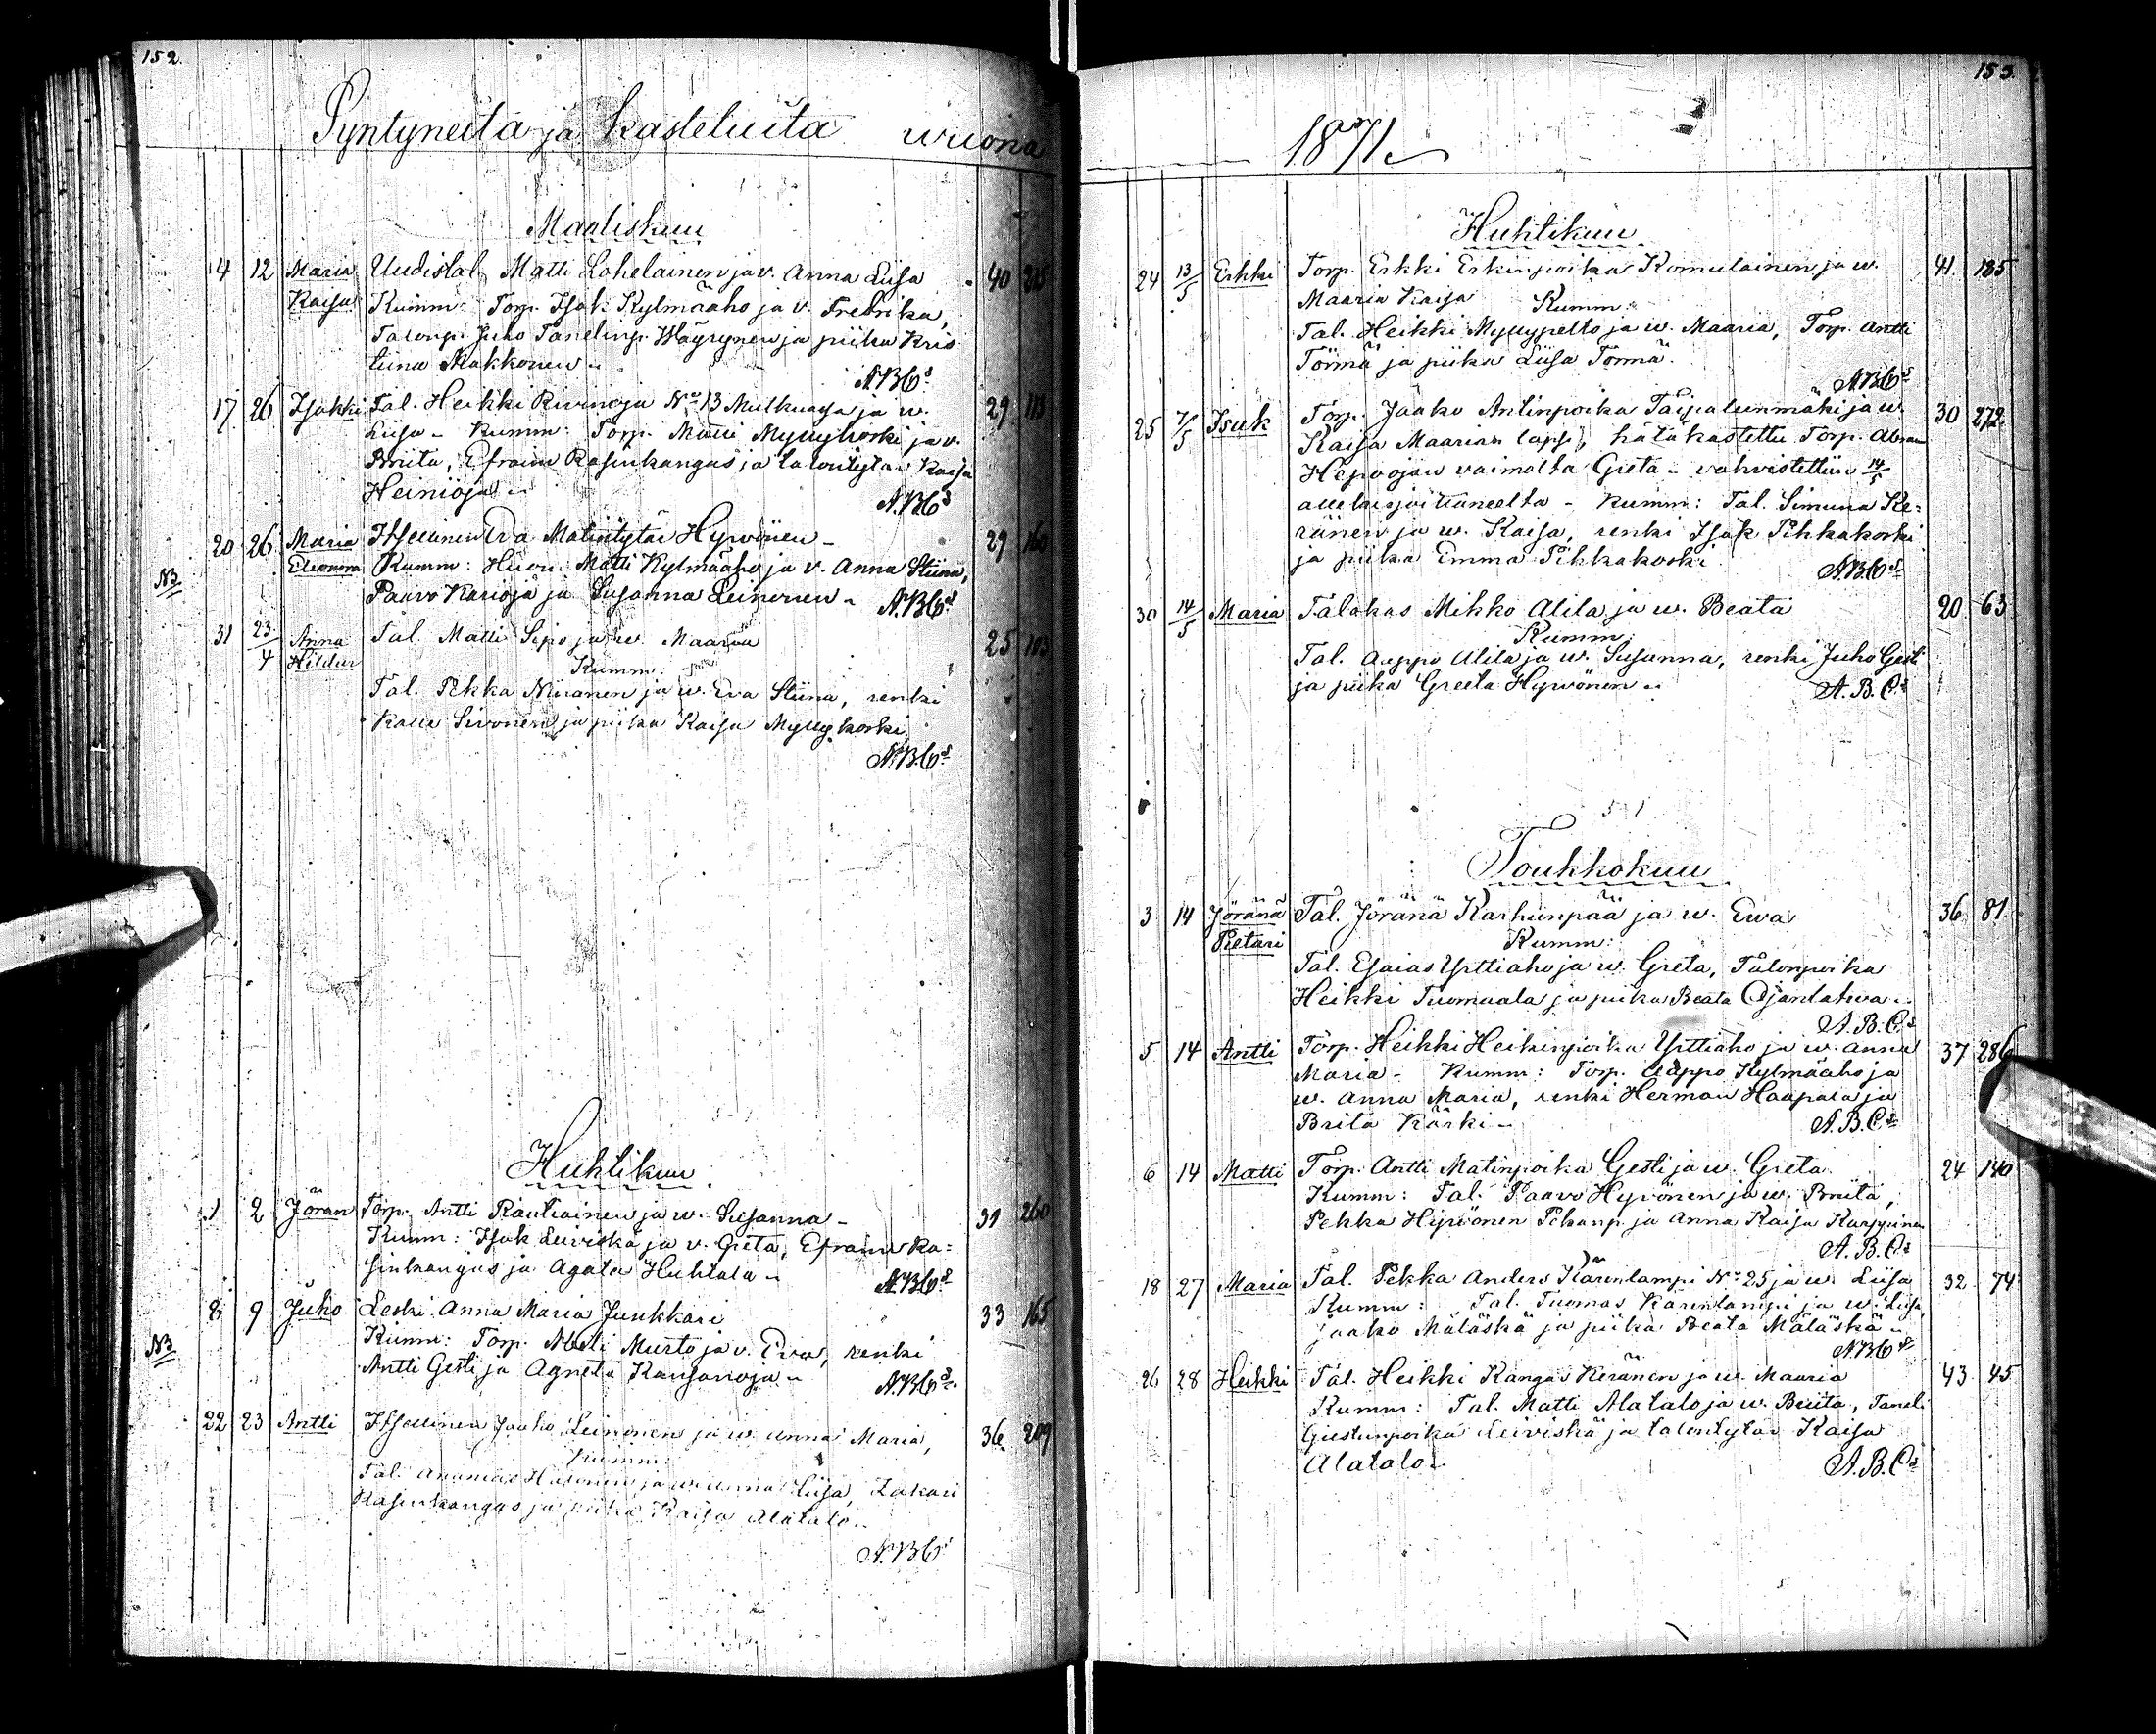 152.
Syntyneitä ja Kasteluita wuona
Maaliskuu
14 12 Maria Uudistal. Matti Lohelainen ja v. Anna Liisa 40
Kaisa Kumm: Torp. Isak Kylmäaho ja v. Fredrika,
Talonp. Juho Tanelinp. Wäyrynen ja piika Kris
tiina Makkonen
A.B.Cs
17 26 Isakki Tal. Heikki Rivinoja No 13 Mulkuaja ja w. 29 113
Liisa - Kumm: Torp. Matti Myllykoski ja v.
Briita, Efraim Rasinkangas ja talontytär Kaisa
Heinioja
A.B.Cs
20 26 Maria Itsellinen Eva Matintytär Hyvönen - 29 160
Eleonora Kumm: Huon. Matti Kylmäaho ja v. Anna Stiina,
NB
Paavo Karioja ja Susanna Leinonen - A.B.Cs
31 23/4 Anna Tal. Matti Sipo ja w. Maaria 25
Hildur Kumm:
Tal. Pekka Niiranen ja w. Eva Stiina, renki
Kalle Sivonen ja piika Kaisa Myllykoski
A.B.Cs
Huhtikuu
1 2 Jöran Torp. Antti Rautiainen ja w. Susanna - 31 260
Kumm: Isak Leiviskä ja v. Greta, Efraim Ra=
sinkangas ja Agata Huhtala
A.B.Cs
8 9 Juho Leski Anna Maria Junkkari 33 165
NB
Kumm: Torp. Matti Murto ja v. Eva, renki
Antti Gesti ja Agneta Kansanoja
A.B.Cs
22 23 Antti Itsellinen Jaako Leinonen ja w. Anna Maria, 36 209
Kumm:
Tal. Ananias Halonen ja w. Anna Liisa, Zakari
Rasinkangas ja piika Kaisa Alatalo
A.B.Cs
153.
1871
Huhtikuu
24 13/5 Erkki Torp. Erkki Erkinpoika Komulainen ja w. 41. 185
Maaria Kaisa Kumm:
Tal. Heikki Myllypelto ja w. Maaria, Torp. Antti
Törmä ja piika Liisa Törmä.
A.B.Cs
25 7/5 Isak Torp. Jaako Antinpoika Taipaleenmäki ja w. 30 272.
Kaisa Maarian lapsi, hätäkastettu Torp. Abram
Hepoojan vaimolta Greta - vahvistettiin 14/5
allekirjoittaneelta - Kumm: Tal. Simuna Ke=
ränen ja w. Kaisa, renki Isak Pihkakoski
ja piika Emma Pihkakoski
A.B.Cs
30 14/5 Maria Talokas Mikko Alila ja w. Beata 20. 63
Kumm:
Tal. Aappo Alila ja w. Susanna, renki Juho Gesti
ja piika Greeta Hyvönen
A.B.Cs
Toukkokuu
3 14 Jöränä Tal. Jöränä Karhunpää ja w. Ewa 36. 81.
Pietari Kumm:
Tal. Esaias Yrttiaho ja w. Greta, Talonpoika
Heikki Tuomaala ja piika Beata Ojanlatwa
A.B.Cs
5 14 Antti Torp. Heikki Heikinpoika Yrttiaho ja w. Anna 37 286
Maria - Kumm: Torp. Aappo Kylmäaho ja
w. Anna Maria, renki Herman Haapala ja
Brita Kärki -
A.B.Cs
6 14 Matti Torp. Antti Matinpoika Gesti ja w. Greta 24 140
Kumm: Tal. Paavo Hyvönen ja w. Briita,
Pekka Hyvönen Pekanp. ja Anna Kaisa Karppinen
A.B.Cs
18 27 Maria Tal. Pekka Anders Kärenlampi No 25 ja w. Liisa 32 74
Kumm: Tal. Tuomas Kärenlampi ja w. Liisa,
Jaako Määttä ja piika Beata Määttä
A.B.Cs
26 28 Heikki Tal. Heikki Kangas Keränen ja w. Maaria 43. 45
Kumm: Tal. Matti Alatalo ja w. Briita, Taneli
Gustanpoika Leiviskä ja talontytär Kaisa
Alatalo
A.B.Cs